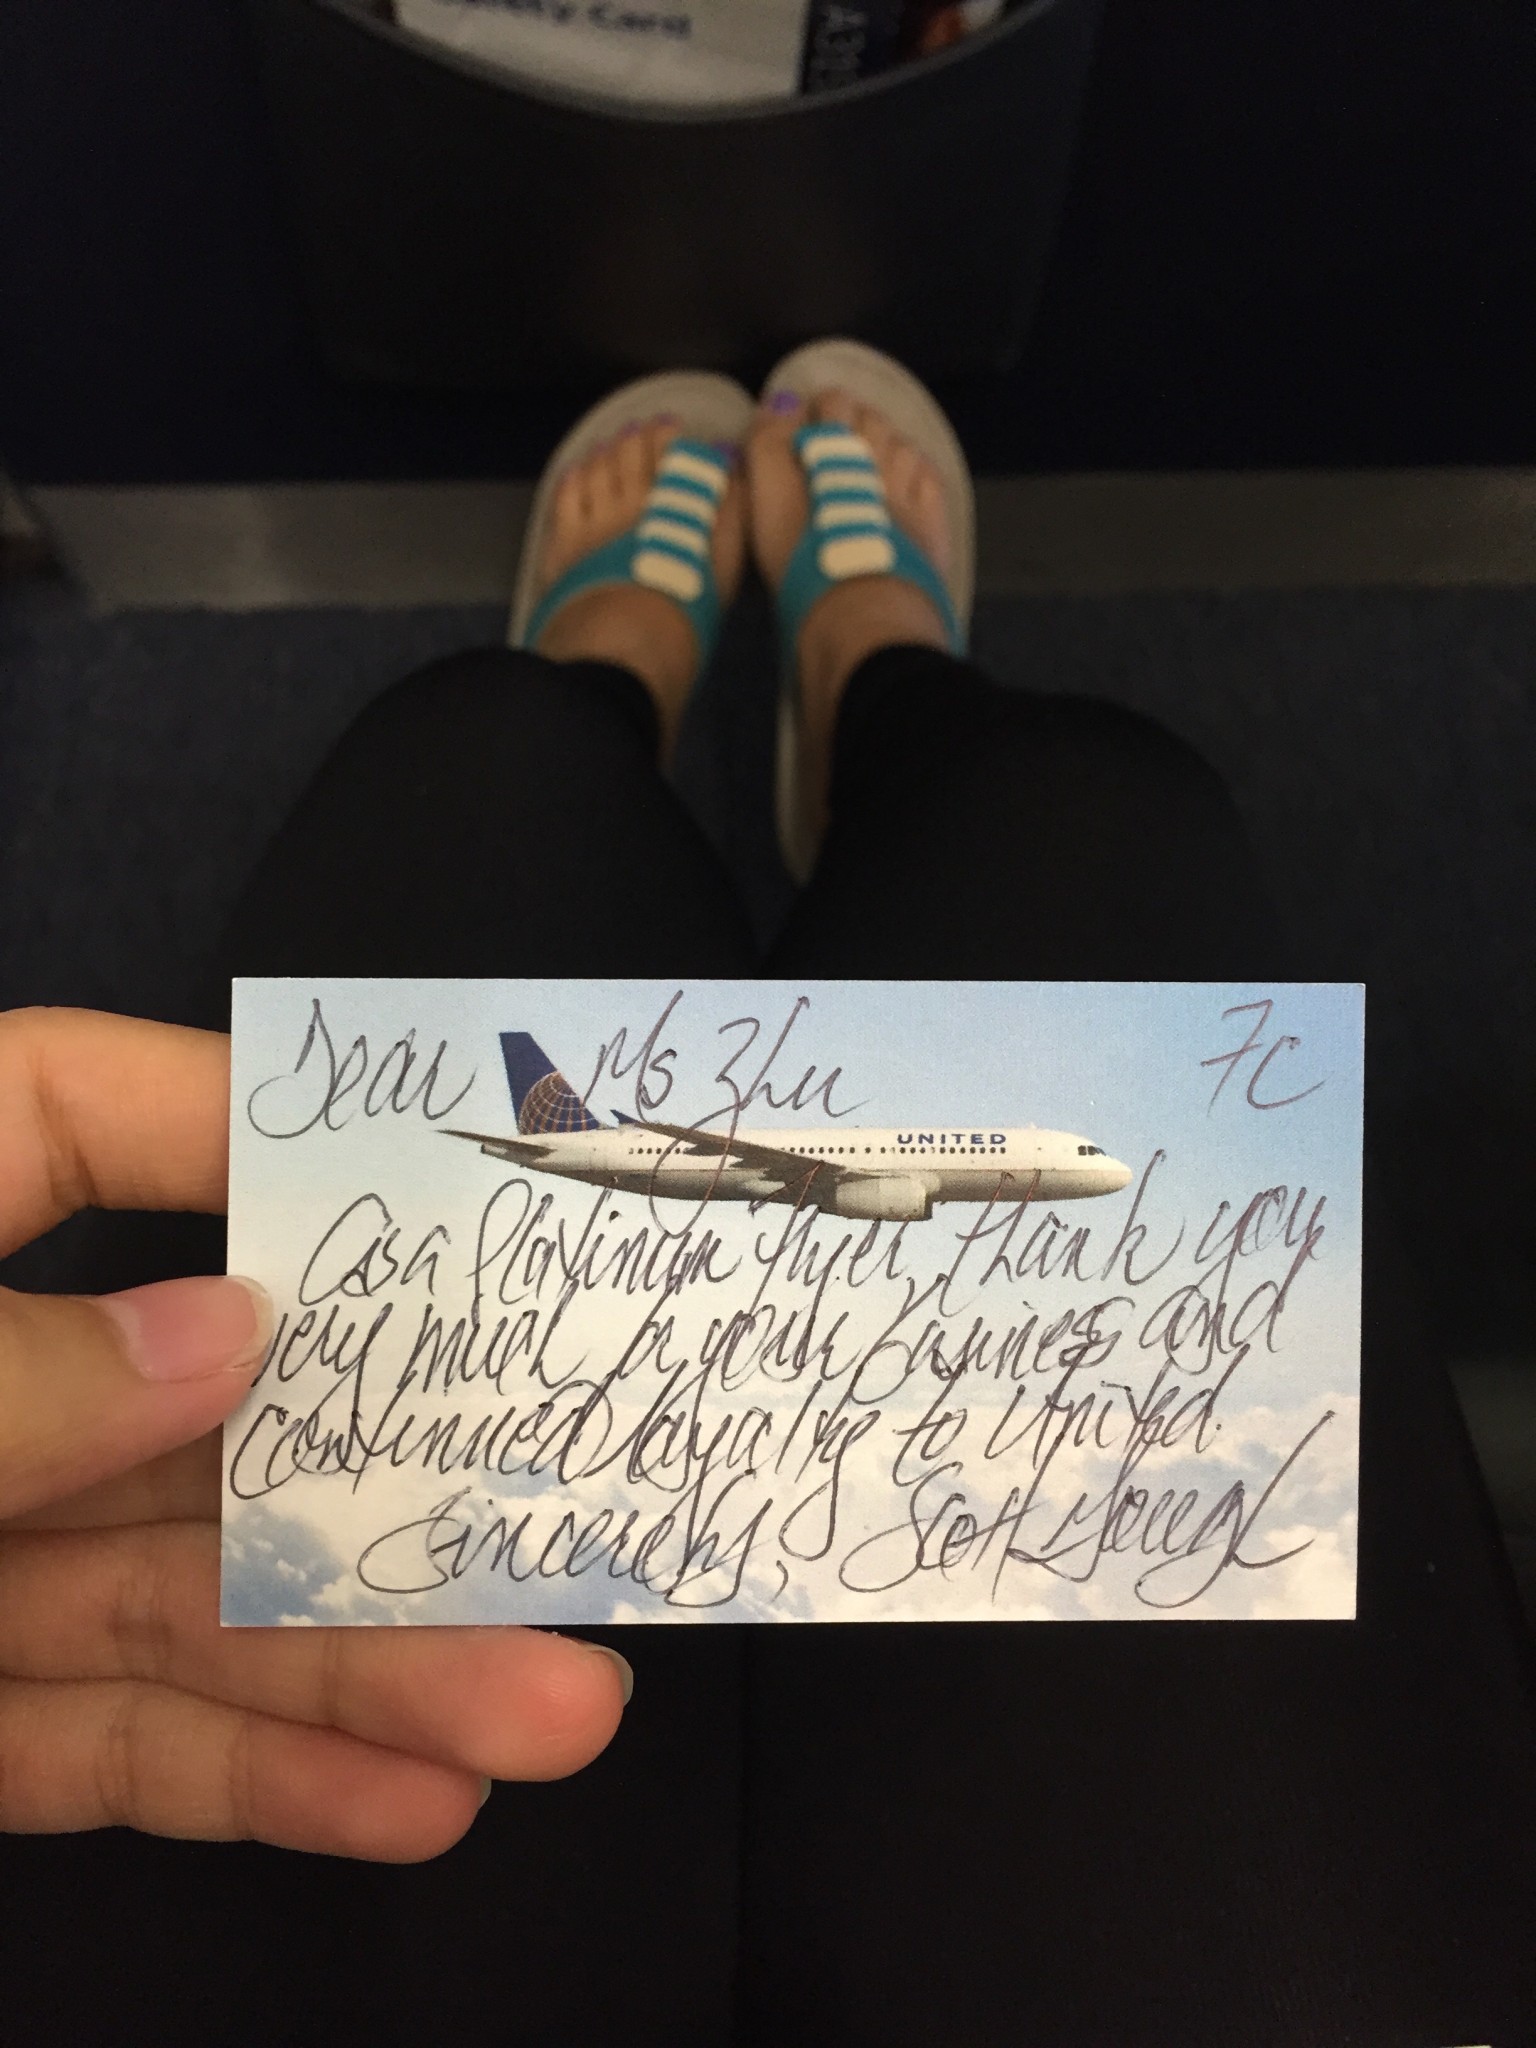 Safety Card
A319
Dear Ms Zhu 7C
UNITED
As a Platinum flyer, thank you
very much for your business and
continued loyalty to United.
Sincerely, Scott Young